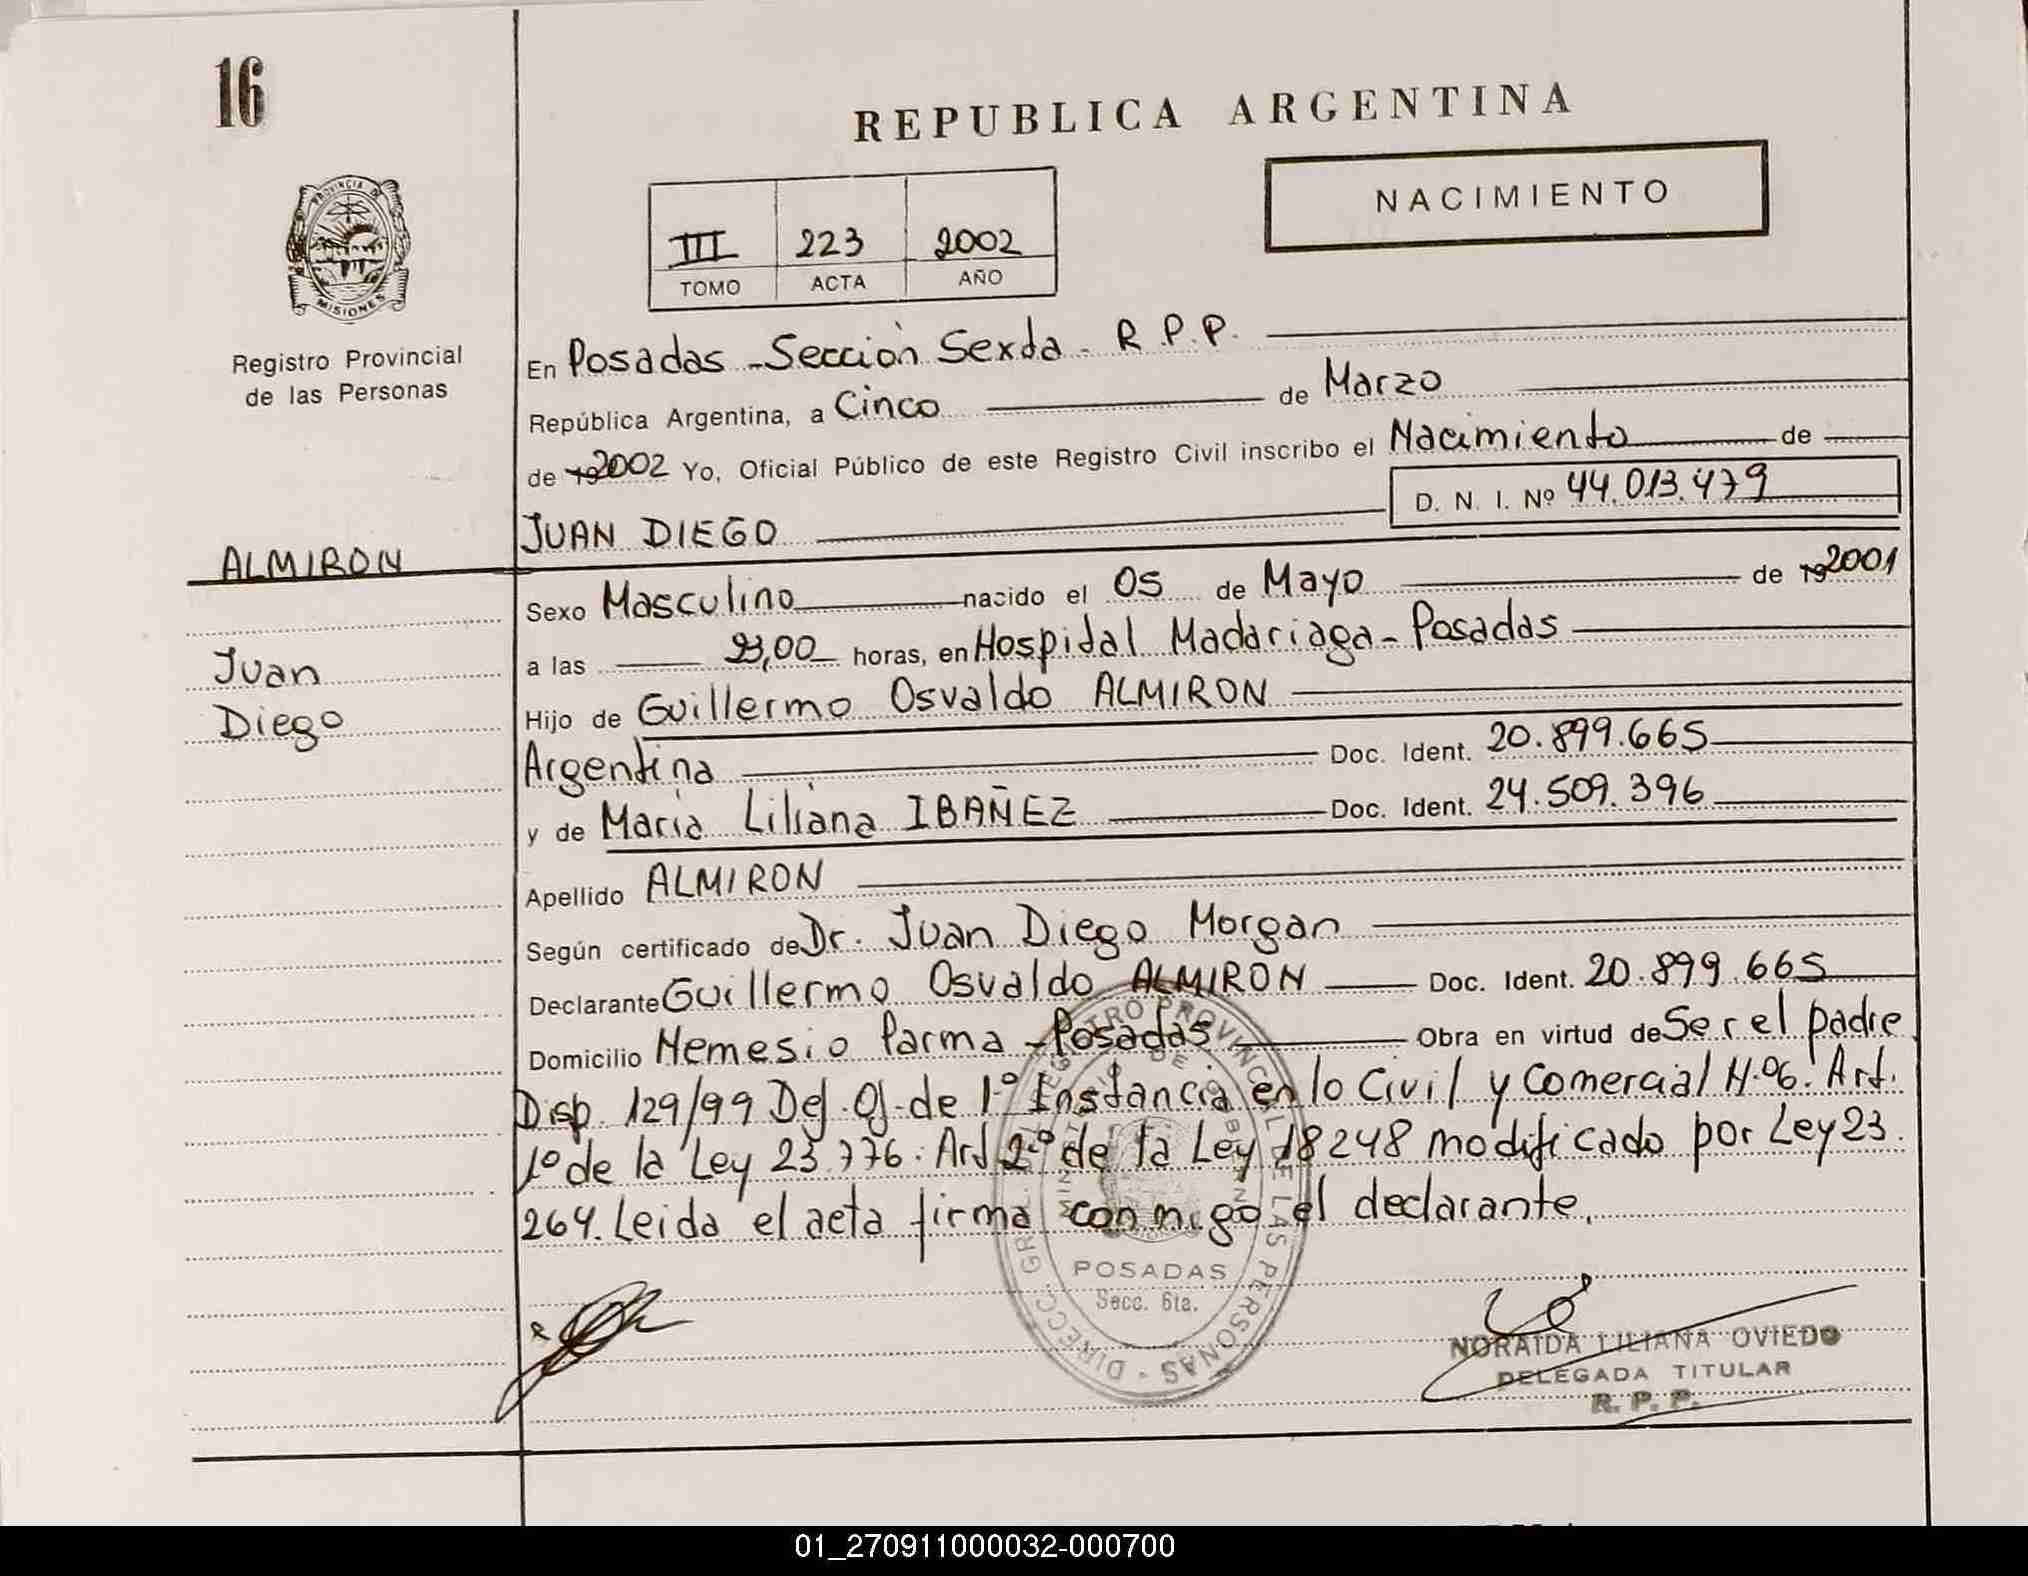 16
REPUBLICA ARGENTINA
NACIMIENTO
III 223 2002
TOMO ACTA AÑO
PROVINCIA DE MISIONES
Registro Provincial
de las Personas
En Posadas - Sección Sexta - R.P.P.
República Argentina, a Cinco de Marzo
de 19 2002 Yo, Oficial Público de este Registro Civil inscribo el Nacimiento de
D. N. I. Nº 44.013.479
JUAN DIEGO
ALMIRON
Juan
Diego
Sexo Masculino nacido el 05 de Mayo de 19 2001
a las 23,00 horas, en Hospital Madariaga - Posadas
Hijo de Guillermo Osvaldo ALMIRON
Argentina Doc. Ident. 20.899.665
y de Maria Liliana IBAÑEZ Doc. Ident. 24.509.396
Apellido ALMIRON
Según certificado de Dr. Juan Diego Morgan
Declarante Guillermo Osvaldo ALMIRON Doc. Ident. 20.899.665
Domicilio Nemesio Parma - Posadas Obra en virtud de Ser el padre
Disp. 129/99 Def. Of. de 1º Instancia en lo Civil y Comercial N.º6. Art.
1º de la Ley 23.776. Art 2º de la Ley 18248 modificado por Ley 23.
264. Leida el acta firma conmigo el declarante.
DIRECC. GRAL. REGISTRO PROVINCIAL DE LAS PERSONAS
POSADAS
Secc. 6ta.
NORAIDA LILIANA OVIEDO
DELEGADA TITULAR
R. P. P.
01_270911000032-000700